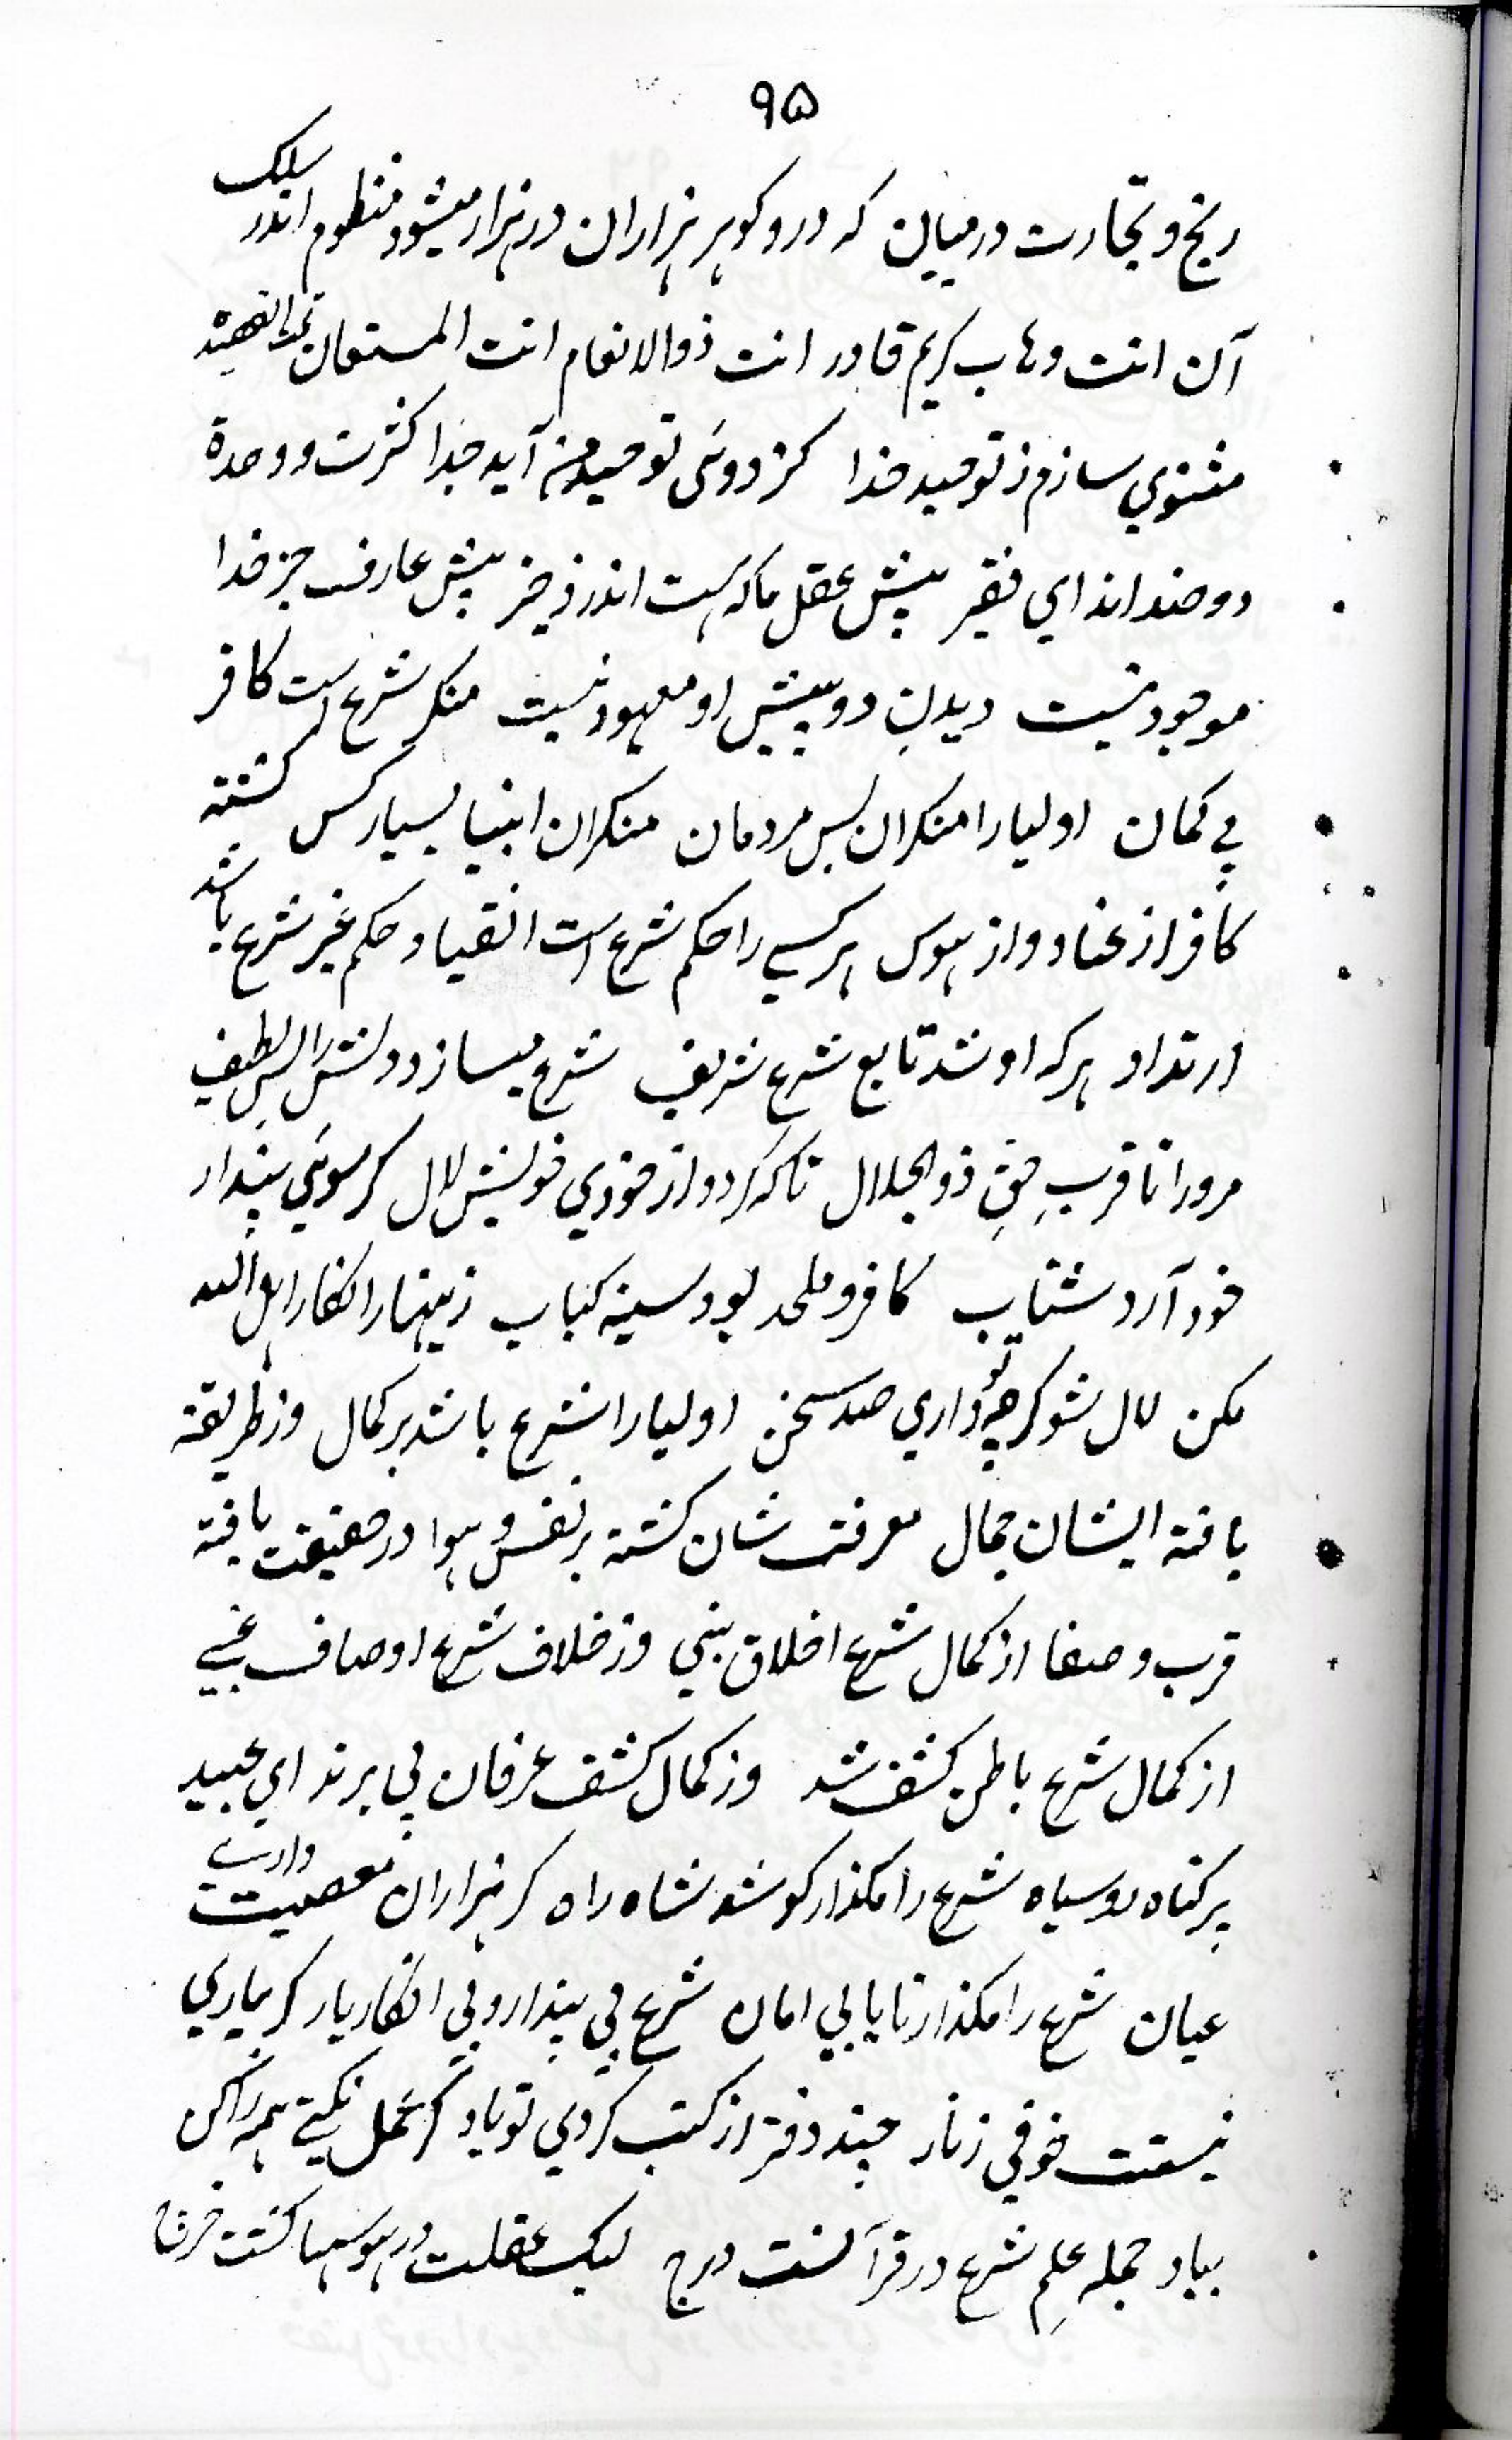 ۹۵
رنج و تجارت درمیان که در و کوهر هزاران در هزار میشود منظوم اندر سلک
آن انت وهاب کریم قادر انت ذوالانعام انت المستعان تمت القصیده
مثنوي سازم ز توحید خدا کز دوئی توحید من آید جدا کثرت و وحدة
دو ضد اند اي فقیر پیش عقل ما که هست اندر ز خیر پیش عارف جز خدا
موجود نیست دیدنِ دو پیش او معهود نیست منکر شرع است کافر
بي کمان اولیا را منکران بس مردمان منکران انبیا بسیار کس کشته
کافر از عناد و از هوس هر کسي را حکم شرع است انقیاد حکم غیر شرع باشد
ارتداد هر که او شد تابع شرع شریف شرع میسازد دلش را بس لطیف
مرورا تا قربِ حقِ ذوالجلال تا که کردد از خودي خویش لال کر سوئي پندار
خود آرد شتاب کافر و ملحد بود سینه کباب زینهار انکار اهل الله
مکن لال شو کرچه تو داري صد سخن اولیا را شرع باشد بر کمال وز طریقة
یافته ایشان جمال معرفت شان کشته بر نفس و هوا در حقیقت یافته
قرب و صفا از کمال شرع اخلاق نبي وز خلاف شرع اوصاف غبي
از کمال شرع باطن کشف شد وز کمال کشف عرفان پي برند اي عبید
پر کناه رو سیاه شرع را مکذار کو شد شاه راه کر هزاران معصیت داري
عیان شرع را مکذار تا یابي امان شرع بي پندار و بي انکار یار کر بیاري
نیستت خوفي ز نار چند دفتر از کتب کردي تو یاد کر عمل نکني همه را کن
بباد جمله علمِ شرع در قرآنست درج لیک عقلت در هوسها کشت خرج